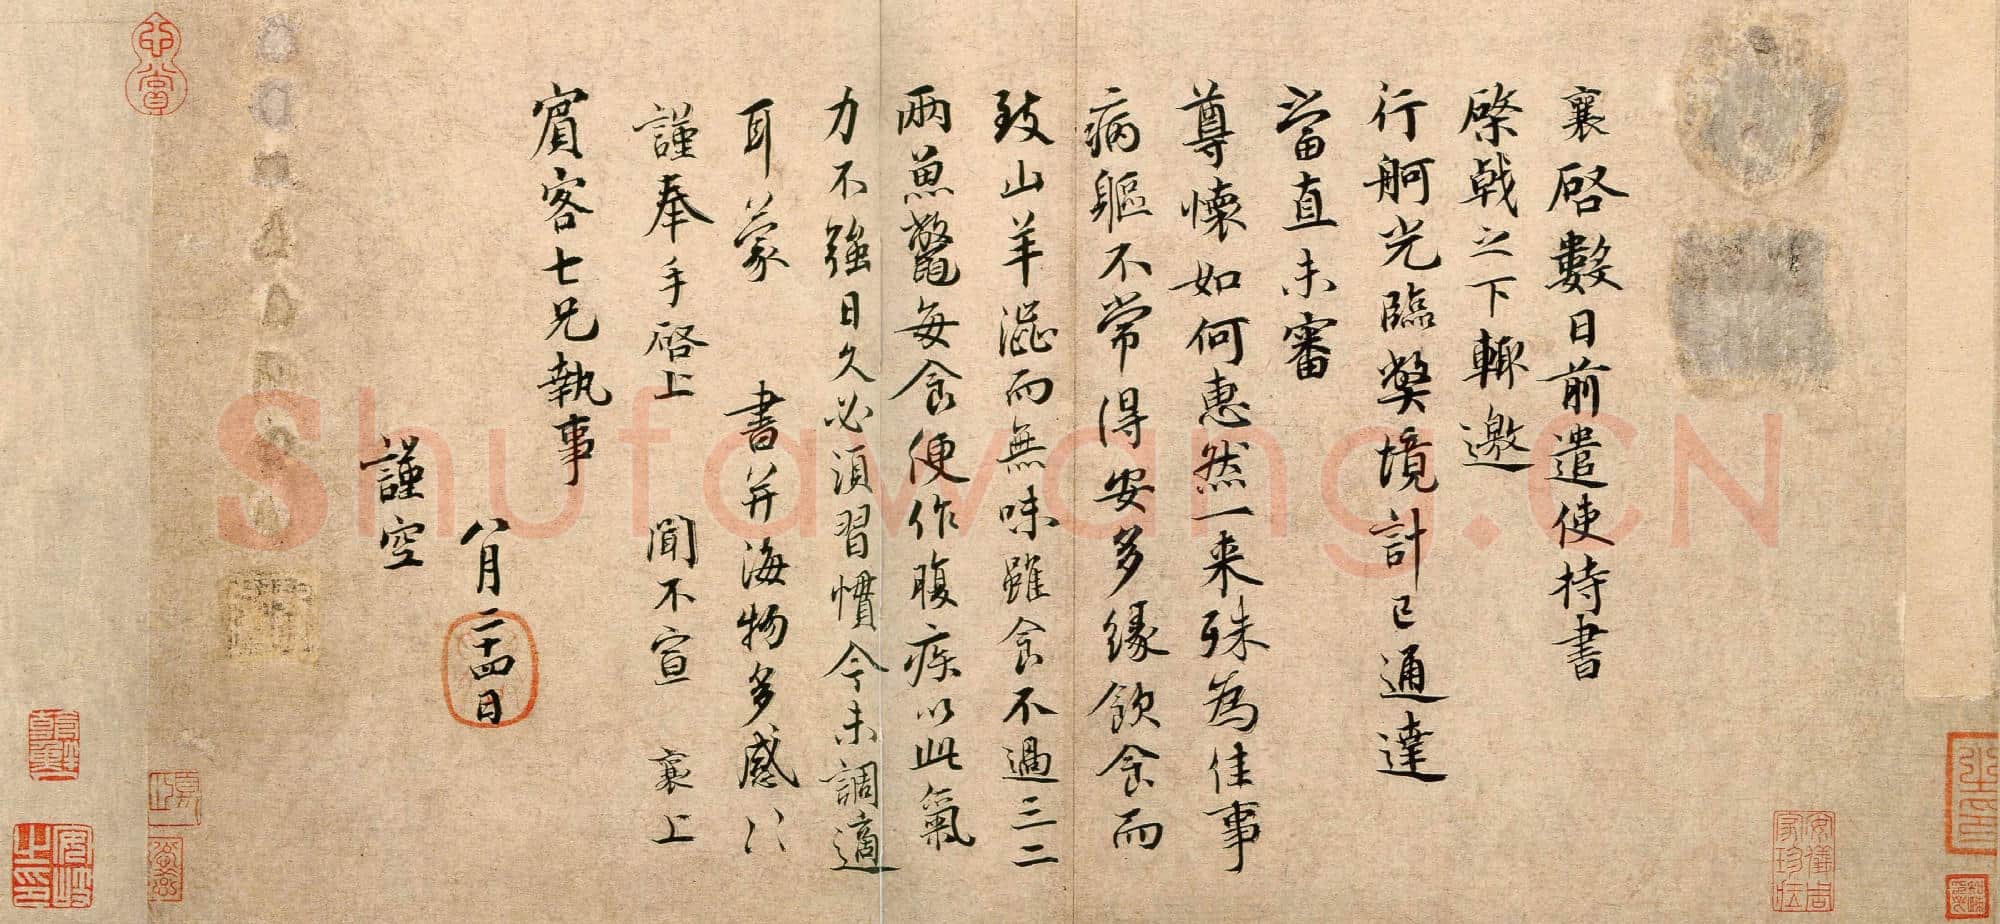 襄啓數日前遣使持書
棨戟之下輙邀
行舸光臨弊境計已通達
當直未審
尊懷如何惠然一来殊為佳事
病軀不常得安多緣飲食而
致山羊澀而無味雖食不過三二
兩魚鼈每食便作腹疾以此氣
力不強日久必須習慣今未調適
耳蒙 書并海物多感〻
謹奉手啓上 聞不宣 襄上
賓客七兄執事
八月二十四日
謹空
Shufawang.CN
安儀周家珍藏